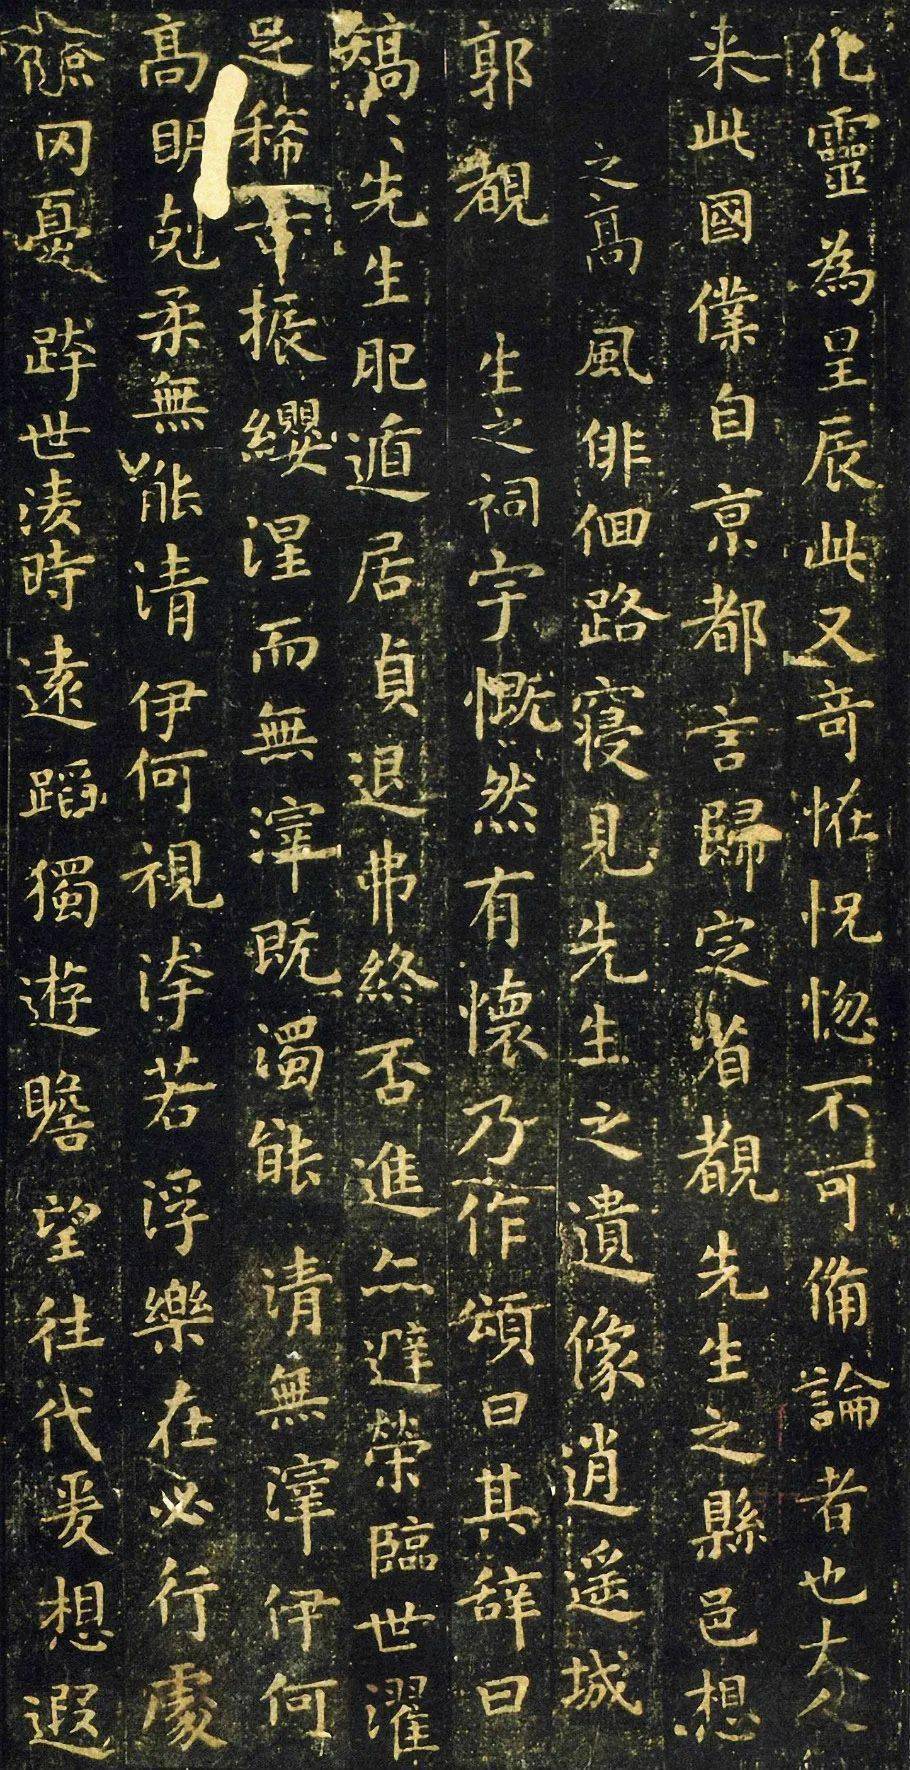 化靈為星辰此又奇恠怳惚不可俻論者也大人
来此國僕自京都言歸定省覩先生之縣邑想
之高風俳佪路寑見先生之遺像逍遥城
郭覩生之祠宇慨然有懷乃作頌曰其辞曰
矯〻先生肥遁居貞退弗終否進亦避榮臨世濯
足稀古振纓涅而無滓既濁能清無滓伊何
高明剋柔無能清伊何視洿若浮樂在必行處
儉罔憂跨世淩時遠蹈獨遊瞻望往代爰想遐